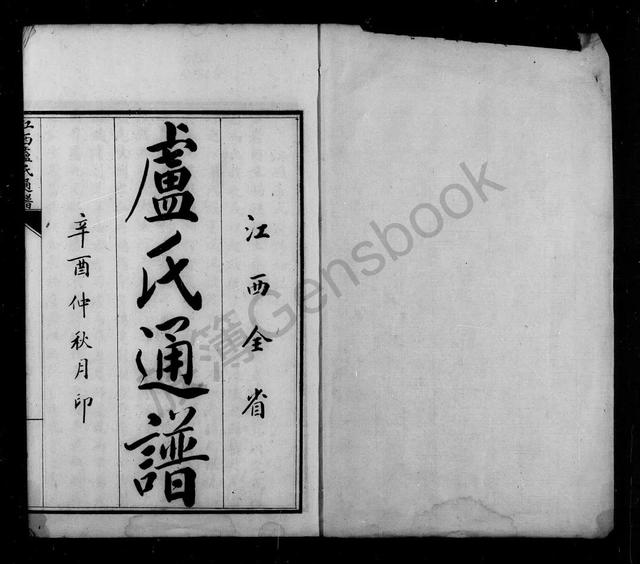 江西全省
盧氏通譜
辛酉仲秋月印
江西盧氏通譜
簿Gensbook